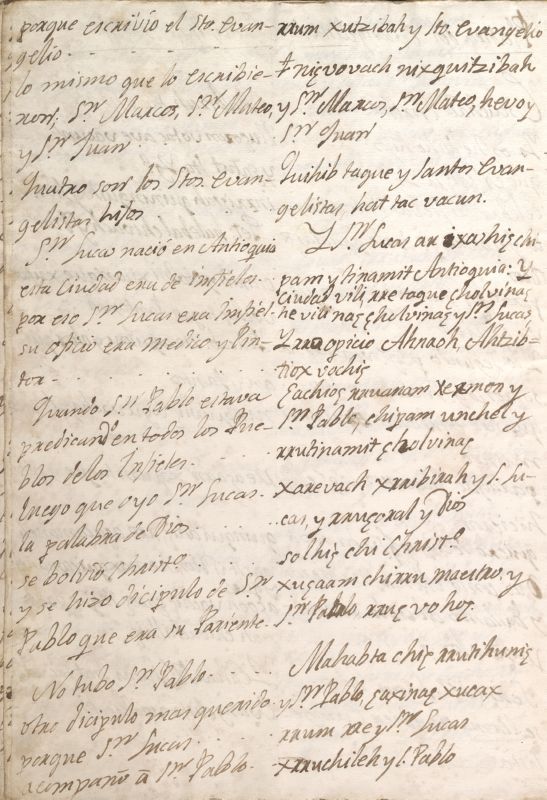 porque escrivio el Sto. Evan-
gelio.
lo mismo que lo escribie-
ron, Sn. Marcos, Sn. Mateo,
y Sn. Juan
Quatro son los Stos. Evan-
gelistas hijos
Sn. Lucas nacio en Antioquia
esta Ciudad era de Infieles
por eso Sn. Lucas era Infiel.
su oficio era Medico y Pin-
tor.
Quando Sn. Pablo estava
predicando en todos los Pue-
blos delos Infieles.
luego que oyo Sn. Lucas.
la palabra de Dios
se bolvio Christo.
y se hizo dicipulo de Sn.
Pablo que era su Pariente.
No tubo Sn. Pablo.
otro dicipulo mas querido
porque Sn. Lucas
acompaño â Sn. Pablo.
rrum xutzibah y Sto. Evangelio
vovach nixquitzibah
y Sn. Marcos, Sn. Mateo, hevo y
Sn. Juan
Quihib taque y Santos Evan-
gelistas, hat tac vacun.
Y Sn. Lucas
pam y tinamit Antioquia: Y
Ciudad vili rre taque çholvinaç
he vili naç çholvinaç y Sn. Lucas
Y rra opicio Ahnaoh, Ahtzib-
tiox vachiç
rruvanam xermon y
Sn. Pablo, chipam unchel y
rrutinamit çholvinaç
xarevach xrribirah y S. Lu-
cas, y rruçoxal y Dios
solhiç chi Christo.
xuçaam chirru maestro, y
Sn. Pablo rruç vo hoç.
Mahabta chiç rrutihuniç
y Sn. Pablo, çaxinaç xucax
rrum rre y Sn. Lucas
xrruchileh y S. Pablo